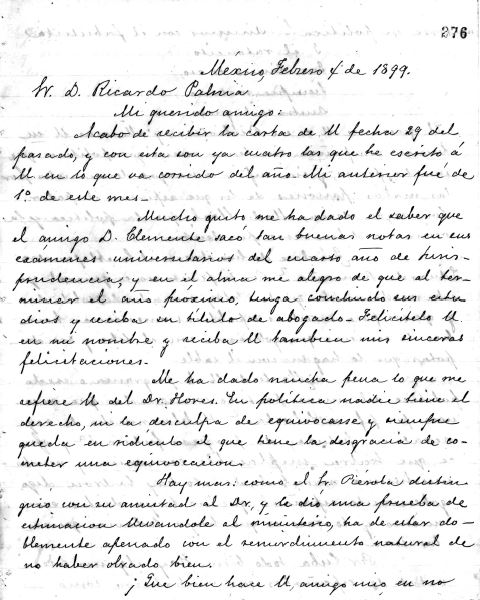 276
Mexico, Febrero 4 de 1899.
Sr. D. Ricardo Palma
Mi querido amigo:
Acabo de recibir la carta de U fecha 29 del
pasado, y con esta son ya cuatro las que he escrito á
U en lo que va corrido del año. Mi anterior fue de
1º de este mes_
Mucho gusto me ha dado el saber que
el amigo D. Clemente sacó tan buenas notas en sus
exámenes universitarios del cuarto año de juris-
prudencia, y en el alma me alegro de que al ter-
minar el año próximo, tenga concluido sus estu
dios y reciba su título de abogado_ Felicítelo U
en mi nombre y reciba U tambien mis sinceras
felicitaciones_
Me ha dado mucha pena lo que me
refiere U del Dr. Flores. En política nadie tiene el
derecho, ni la desculpa de equivocarse y siempre
queda en ridículo el que tiene la desgracia de co-
meter una equivocacion.
Hay mas: como el Sr Pierola distin
guió con su amistad al Dr, y le dió una prueba de
estimacion llevandole al ministerio, ha de estar do-
blemente apenado con el remordimiento natural de
no haber obrado bien.
¡Que bien hace U, amigo mio, en no